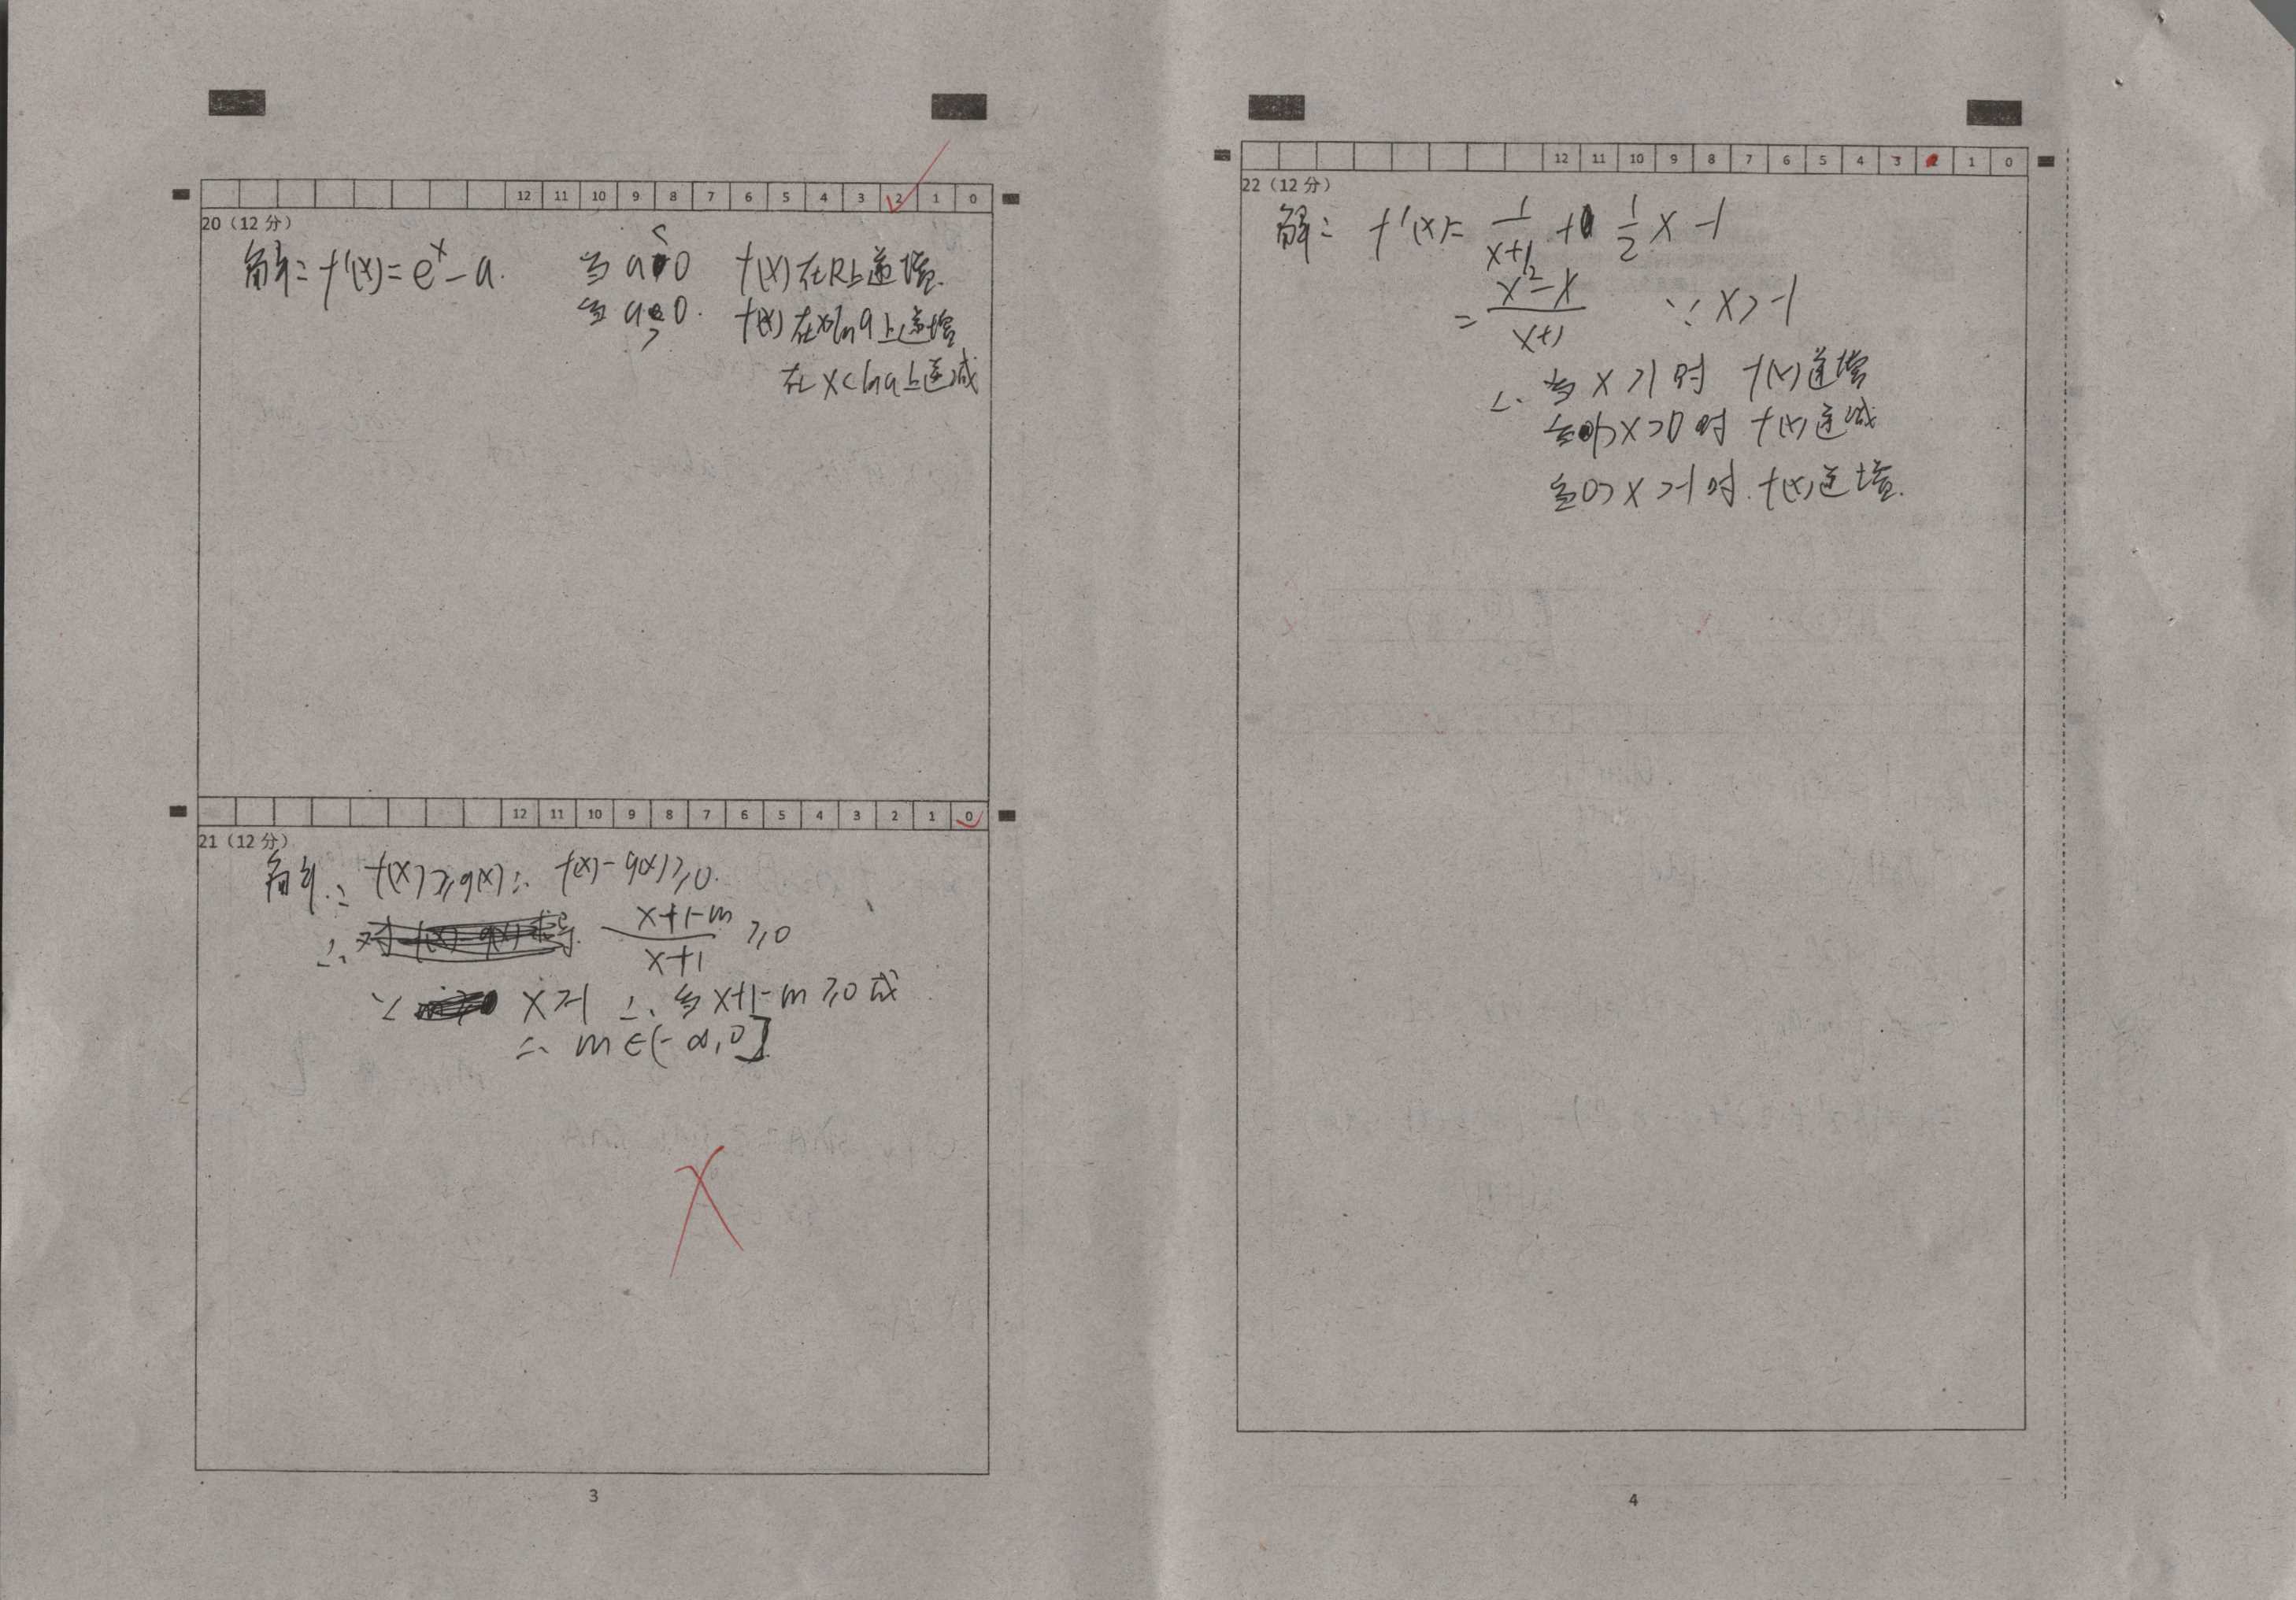 12 11 10 9 8 7 6 5 4 3 2 1 0
20（12 分）
解: f'(x)=e^x-a. 当a<0 f(x)在R上递增.
当a>0. f(x)在x>lna上递增
在x<lna上递减
12 11 10 9 8 7 6 5 4 3 2 1 0
21（12 分）
解: f(x)≥g(x)∴ f(x)-g(x)≥0.
∴ \frac{x+1-m}{x+1} ≥0
∵ x>-1 ∴ 当x+1-m≥0成
∴ m∈(-∞,0]
3
12 11 10 9 8 7 6 5 4 3 1 0
22（12 分）
解: f'(x)= \frac{1}{x+1} + \frac{1}{2}x-1
= \frac{x^2-x}{x+1} ∵x>-1
∴ 当x>1时 f(x)递增
当1>x>0时 f(x)递减
当0>x>-1时.f(x)递增.
4